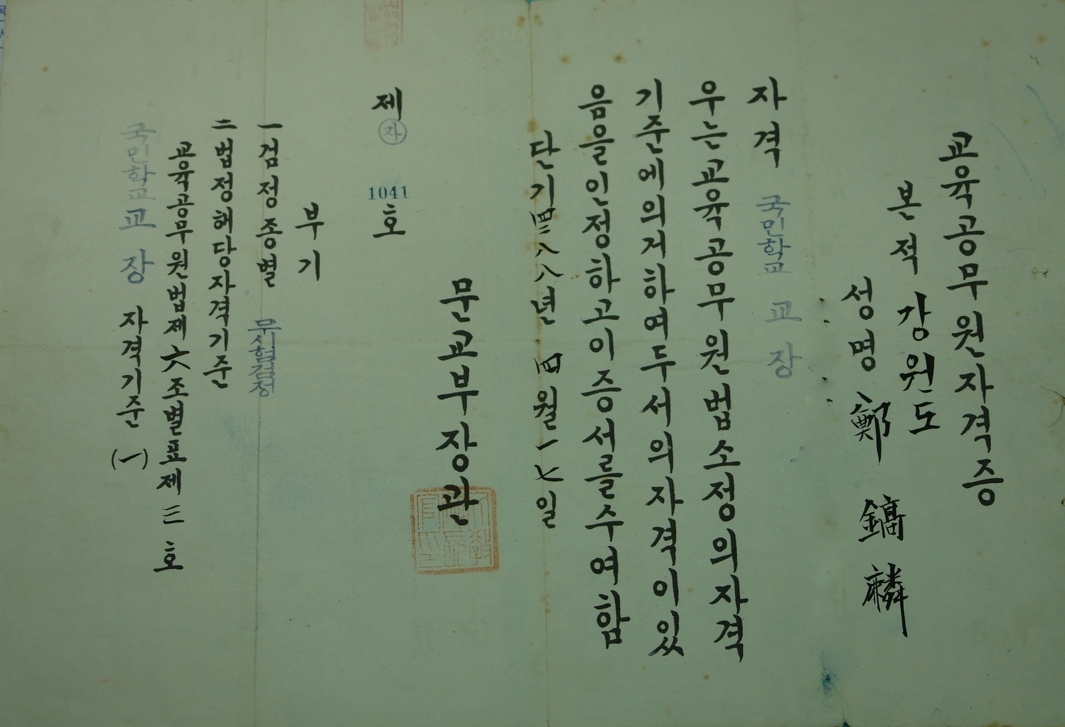 교육공무원자격증
본적 강원도
성명 鄭 鎬 麟
자격 국민학교 교장
우는교육공무원법소정의자격
기준에의거하여두서의자격이있
음을인정하고이증서를수여함
단기四二八八년 四월一七일
문교부장관
제 자 1041 호
부기
一 검정종별 무시험검정
二 법정해당자격기준
교육공무원법제六조별표제三호
국민학교 교장 자격기준 (一)